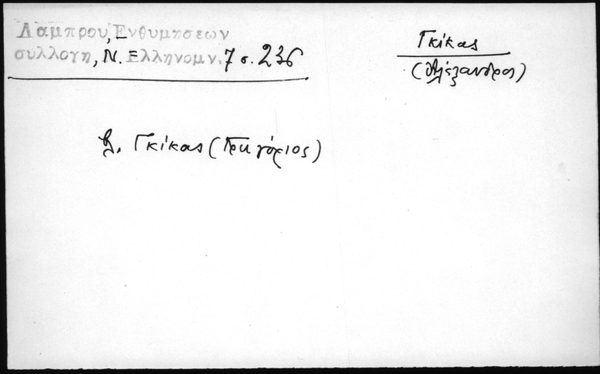 Λάμπρου, Ἐνθυμήσεων
συλλογή, Ν. Ἑλληνομν. 7 σ. 236
Γκίκας
(Ἀλέξανδρος)
βλ. Γκίκας (Γρηγόριος)